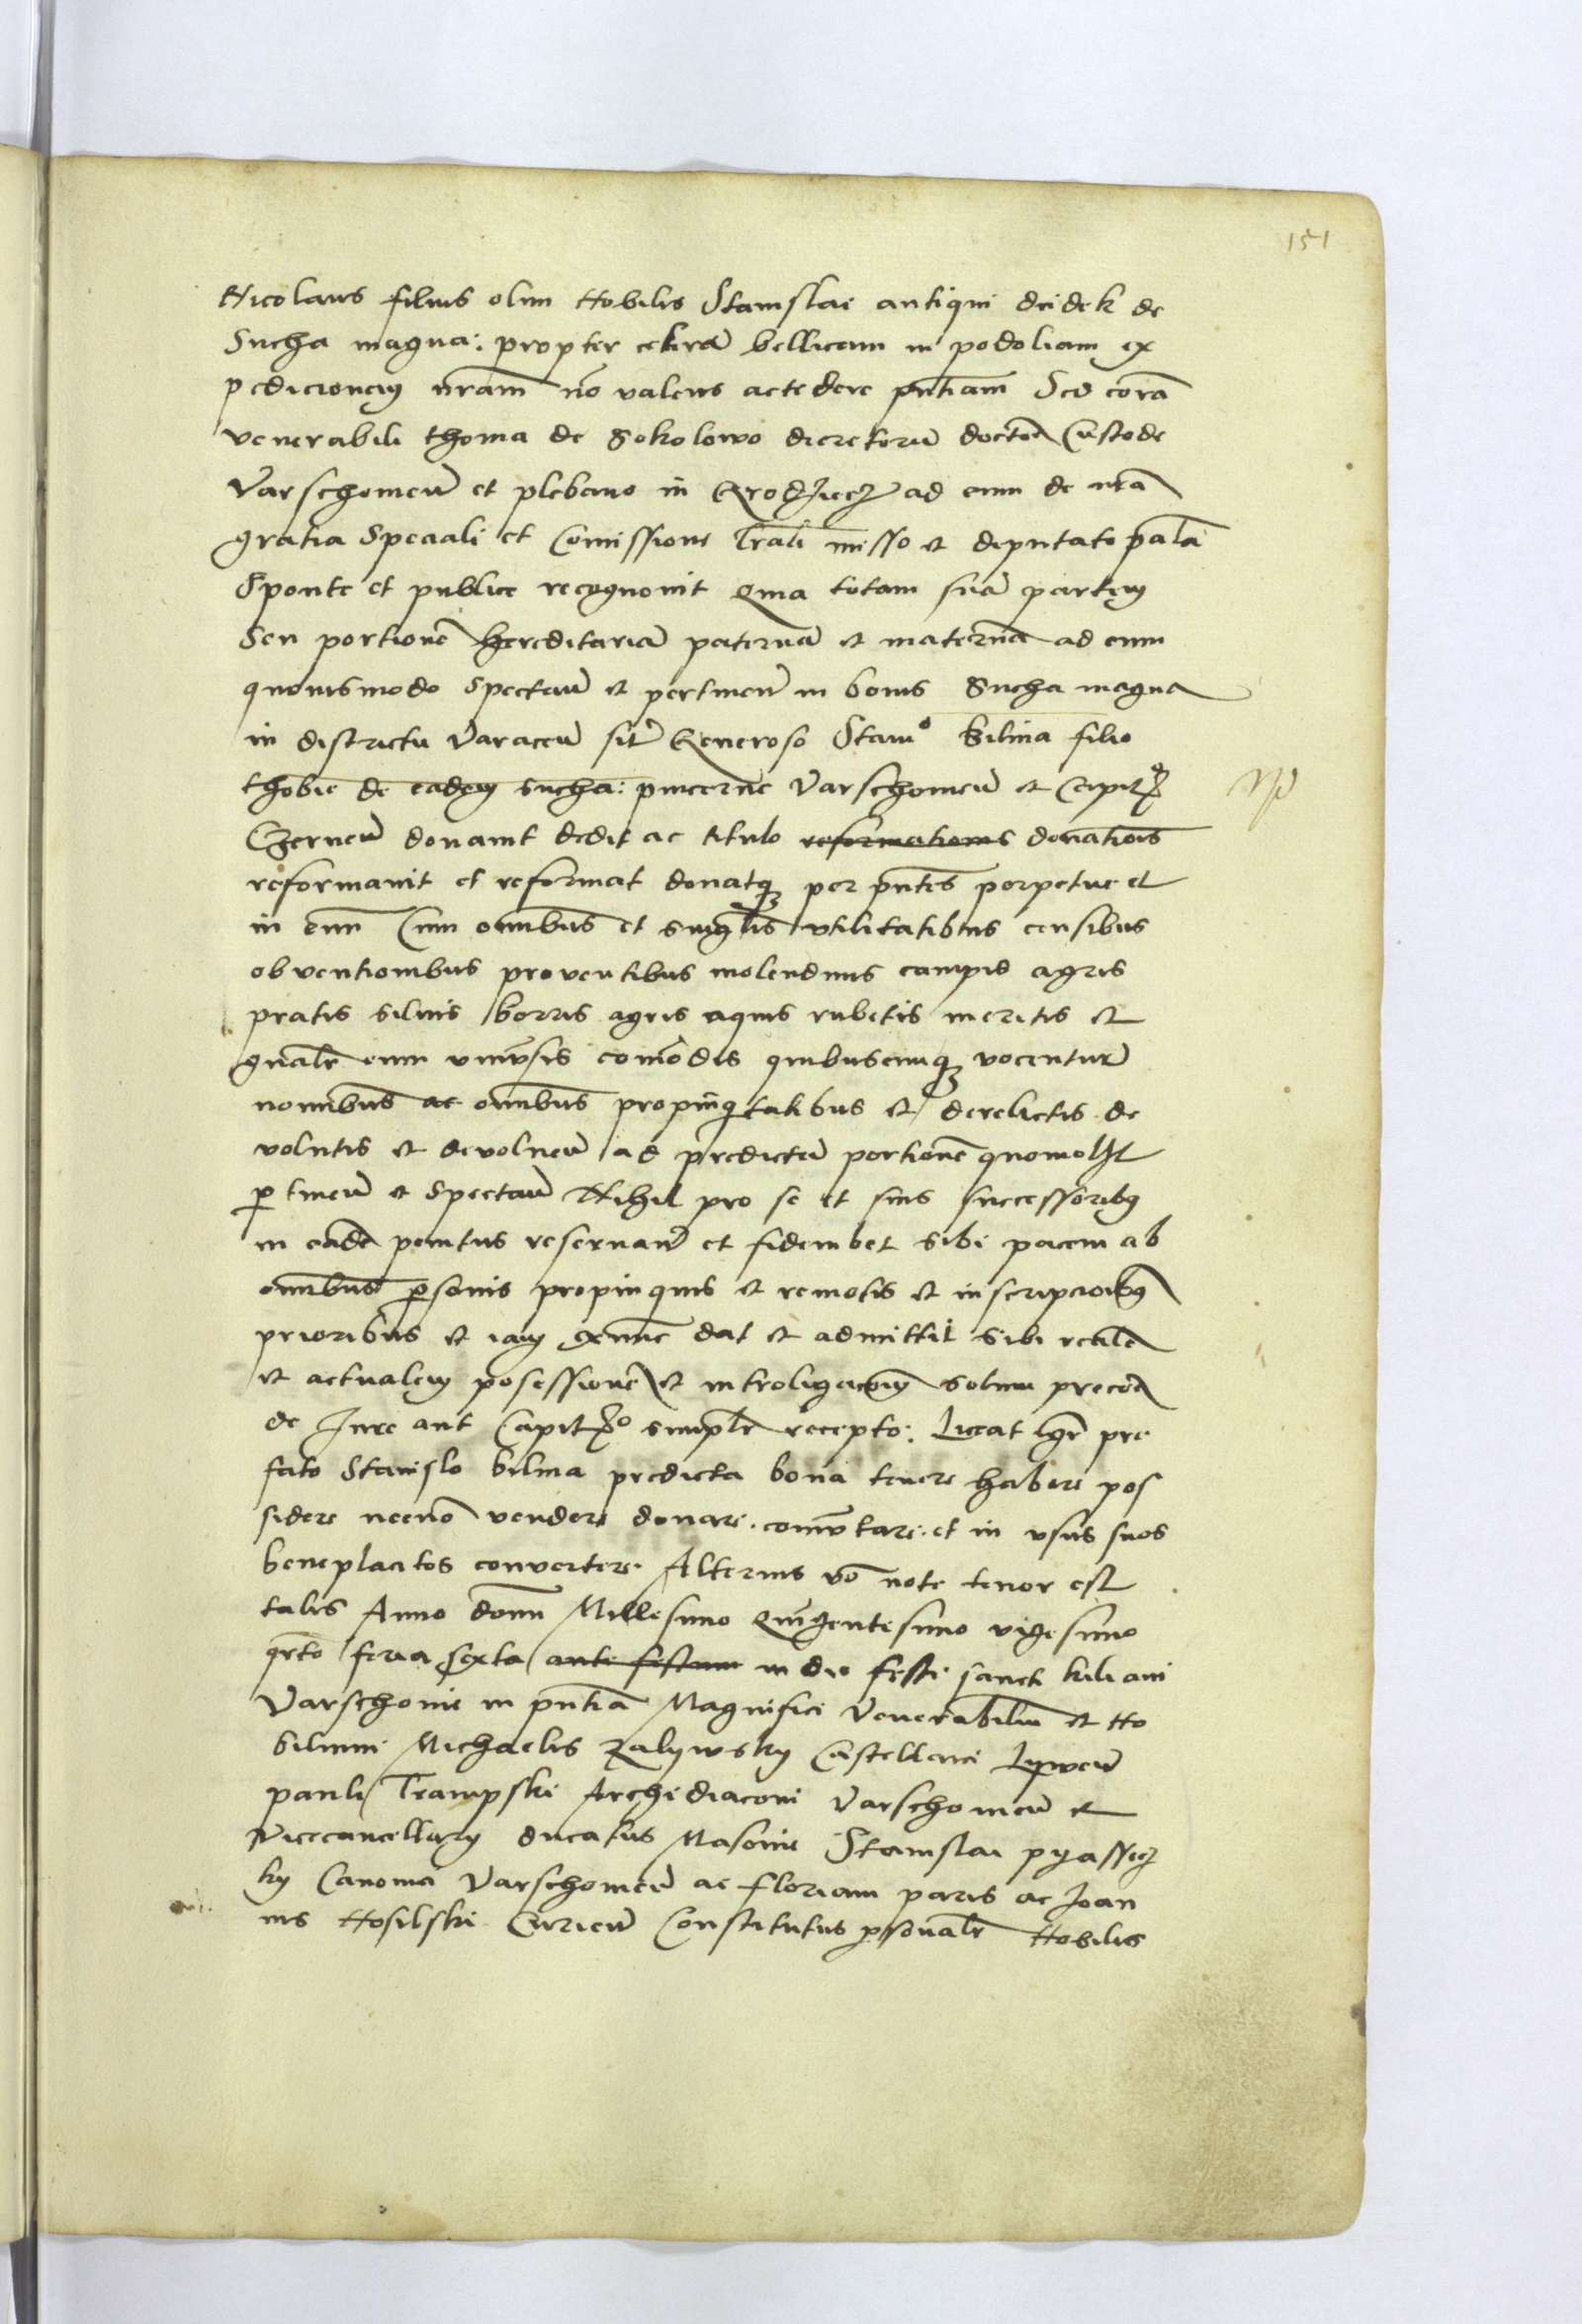 151
Nicolaus filius olim Nobilis Stanislai antiqui deidek de
Sucha magna: propter celerem bellicam in podoliam ex
pedicionem nram no valens accedere pntiam Sed cora
venerabili thoma de Sokolowo decretoru doctore Custode
Varschouien et plebano in Grodziecz ad eum de nra
gratia Speciali et Comissione lrali misso et deputato pala
Sponte et publice recognouit Quia totam sua partem
Seu portione hereditaria paterna et materna ad eum
quouismodo Spectan et pertinen in bonis Sucha magna
in districtu Varacen sit Generoso Stano Bilina filio
thobie de eadem sucha: pincerne Varschouien et Capito
Czernen donauit dedit ac titulo reformationis donationis
reformauit et reformat donatq per pntes perpetue et
in eum Cum omibus et singulis vtilitatibus censibus
obventionibus proventibus molendinis campis agris
pratis siluis borris agris aquis rubetis meritis et
gnalr cum vniuersis comodis quibuscumq vocentur
nomibus ac omibus propinqtatibus et derelictis de
volutis et devoluen ad predicta portione quomolt
ptinen et Spectan Nihil pro se et suis successoribq
in eade penitus reseruan et fideiubet sibi pacem ab
omibus psonis propinquis et remotis et inscripcioibq
prioribus et iam exnunc dat et admittit sibi reale
et actualem posessione et introligacoem solum precoe
de Jure aut Capito simplr recepto: Liceat igr pre
fato Stanislo bilina predicta bona tenere habere pos
sidere necno vendere donare. comutare. et in vsus suos
beneplacitos convertere Alterius vo note tenor est
talis Anno domi Millesimo Quigentesimo vigesimo
qrto feria Sexta ante festum in die festi sancti kiliani
Varschouie in pntia Magnifici Venerabilium et No
bilium Michaelis Zalywsky Castellani Lywen
pauli Trampski Archidiaconi Varschouien et
Vicecancellary ducatus Masouie Stanislai pyassecz
ky Canonici Varschouien ac floriani paris ac Joan
nis Nosilski Curien Constitutus psonalr Nobilis